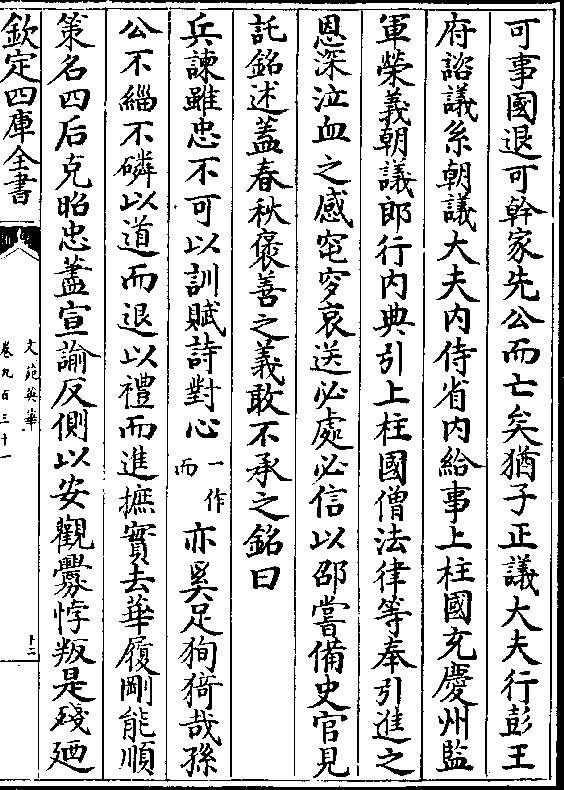 可事國退可幹家先公而亡矣猶子正議大夫行彭王
府諮議系朝議大夫内侍省内給事上柱國充慶州監
軍榮義朝議郎行内典引上柱國僧法律等奉引進之
恩深泣血之感窀穸哀送必處必信以邵嘗備史官見
託銘述蓋春秋褒善之義敢不承之銘曰
兵諫雖忠不可以訓賦詩對心一作而亦奚足狥猗哉孫
公不緇不磷以道而退以禮而進摭實去華履剛能順
策名四后克昭忠藎宣諭反側以安觀釁悖叛是殘廼
欽定四庫全書
文苑英華
卷九百三十一
十二